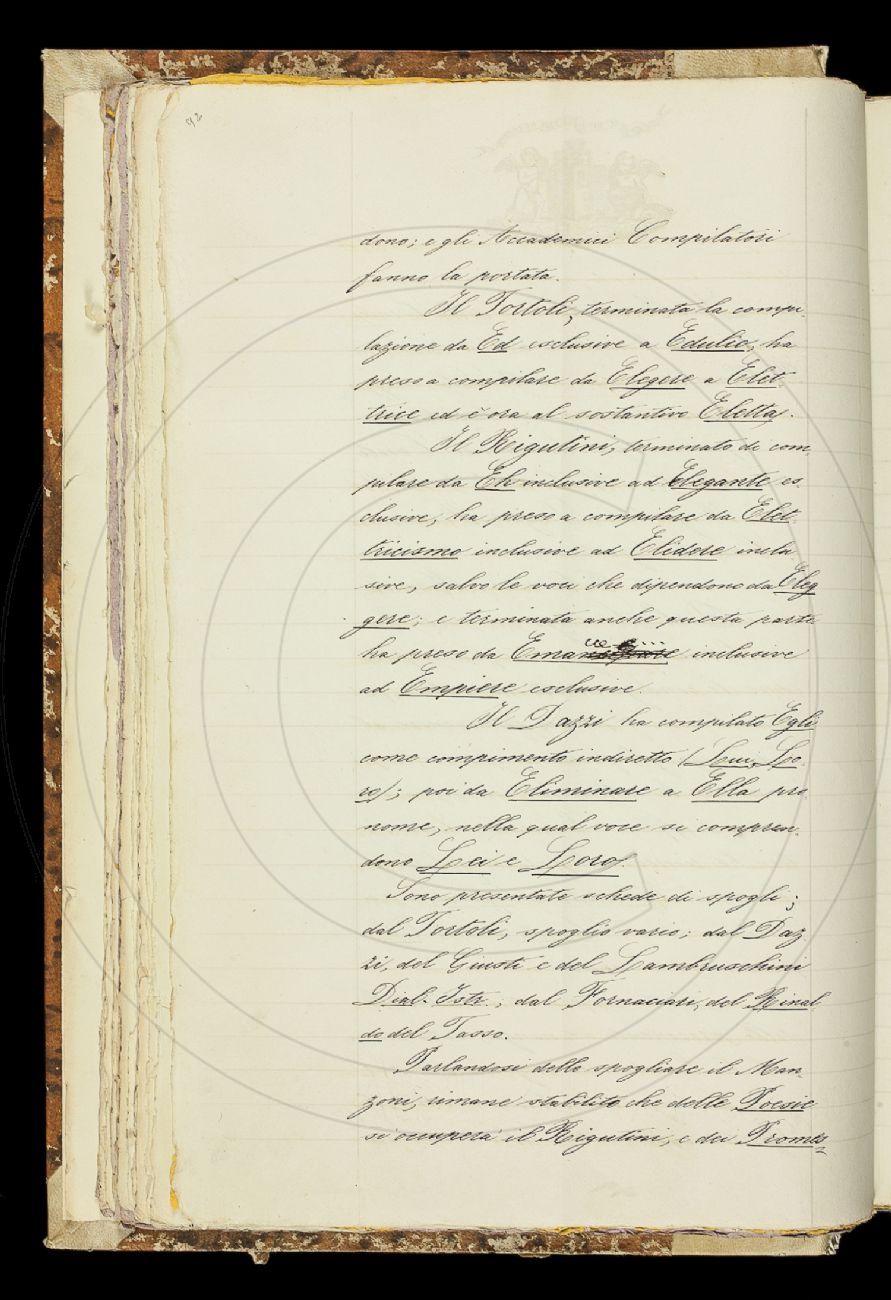 92
dono; e gli Accademici Compilatori
fanno la portata.
Il Tortoli, terminata la compi-
lazione da Ed esclusive a Edulio, ha
preso a compilare da Elegere a Elet-
trice ed è ora al sostantivo Eletta.
Il Rigutini, terminato di com-
pilare da Eh inclusive ad Elegante es-
clusive, ha preso a compilare da Elet-
tricismo inclusive ad Elidere inclu
sive, salvo le voci che dipendono da Eleg
gere; e terminata anche questa parte
ha preso da Emana inclusive
ad Empiere esclusive.
Il Dazzi ha compilato Egli
come compimento indiretto (Lui, Lo-
ro); poi da Eliminare a Ella pro
nome, nella qual voce si compren-
dono Lei e Loro.
Sono presentate schede di spogli;
dal Tortoli, spoglio vario; dal Daz
zi, del Giusti e del Lambruschini
Dial. Istr., dal Fornaciari, del Rinal-
do del Tasso.
Parlandosi dello spogliare il Man-
zoni, rimane stabilito che delle Poesie
si occuperà il Rigutini, e dei Promes